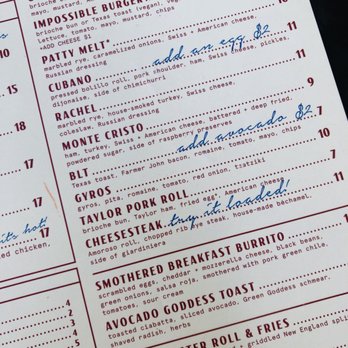 IMPOSSIBLE BURGER
brioche bun or Texas toast (vegan), veg
Lettuce, tomato, mayo, mustard, chips
+ADD CHEESE $1
PATTY MELT* 11
marbled rye, caramelized onions, Swiss + American cheese,
Russian dressing add an egg $2
CUBANO 11
pressed bolillo roll, pork shoulder, ham, Swiss cheese, pickles,
dijonaise, side of chimichurri
RACHEL 9
marbled rye, house-smoked turkey, Swiss cheese,
coleslaw, Russian dressing
MONTE CRISTO 10
ham, turkey, Swiss + American cheese, battered + deep fried,
powdered sugar, side of raspberry preserves
BLT add avocado $2 7
Texas toast, Farmer John bacon, romaine, tomato, mayo, chips
GYROS 10
gyros, pita, romaine, tomato, red onion, tzatziki
TAYLOR PORK ROLL 7
brioche bun, Taylor ham, fried egg*, American cheese
CHEESESTEAK try it loaded!
Amoroso roll, chopped rib eye steak, house-made béchamel,
side of giardiniera
SMOTHERED BREAKFAST BURRITO
scrambled eggs, cheddar + mozzarella cheese, black beans,
green onions, salsa roja, smothered with pork green chile,
tomatoes, sour cream
AVOCADO GODDESS TOAST
toasted ciabatta, sliced avocado, Green Goddess schmear,
shaved radish, herbs
ROLL & FRIES
griddled New England
10
15
18
17
17
its hot! 17
chicken,
4
2
4
4